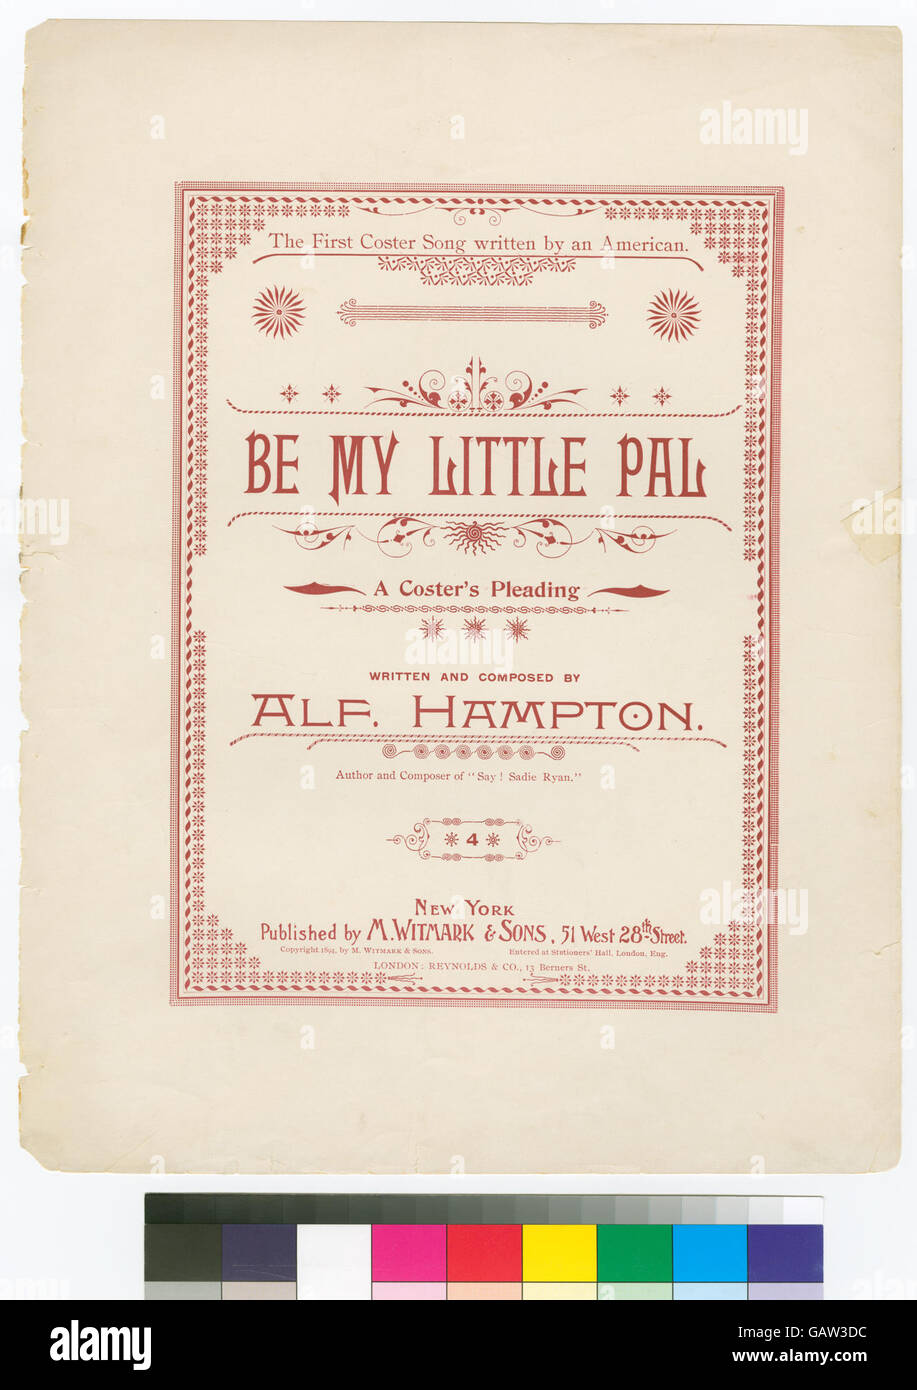 The First Coster Song written by an American.
BE MY LITTLE PAL
A Coster's Pleading
WRITTEN AND COMPOSED BY
ALF. HAMPTON.
Author and Composer of "Say! Sadie Ryan."
4
NEW YORK
Published by M. WITMARK & SONS, 51 West 28th Street.
Copyright 1894, by M. WITMARK & SONS. Entered at Stationers' Hall, London, Eng.
LONDON: REYNOLDS & CO., 13 Berners St.
alamy
alamy
alamy
alamy
alamy
alamy
alamy
a
a
a
a
alamy
Image ID: GAW3DC
www.alamy.com